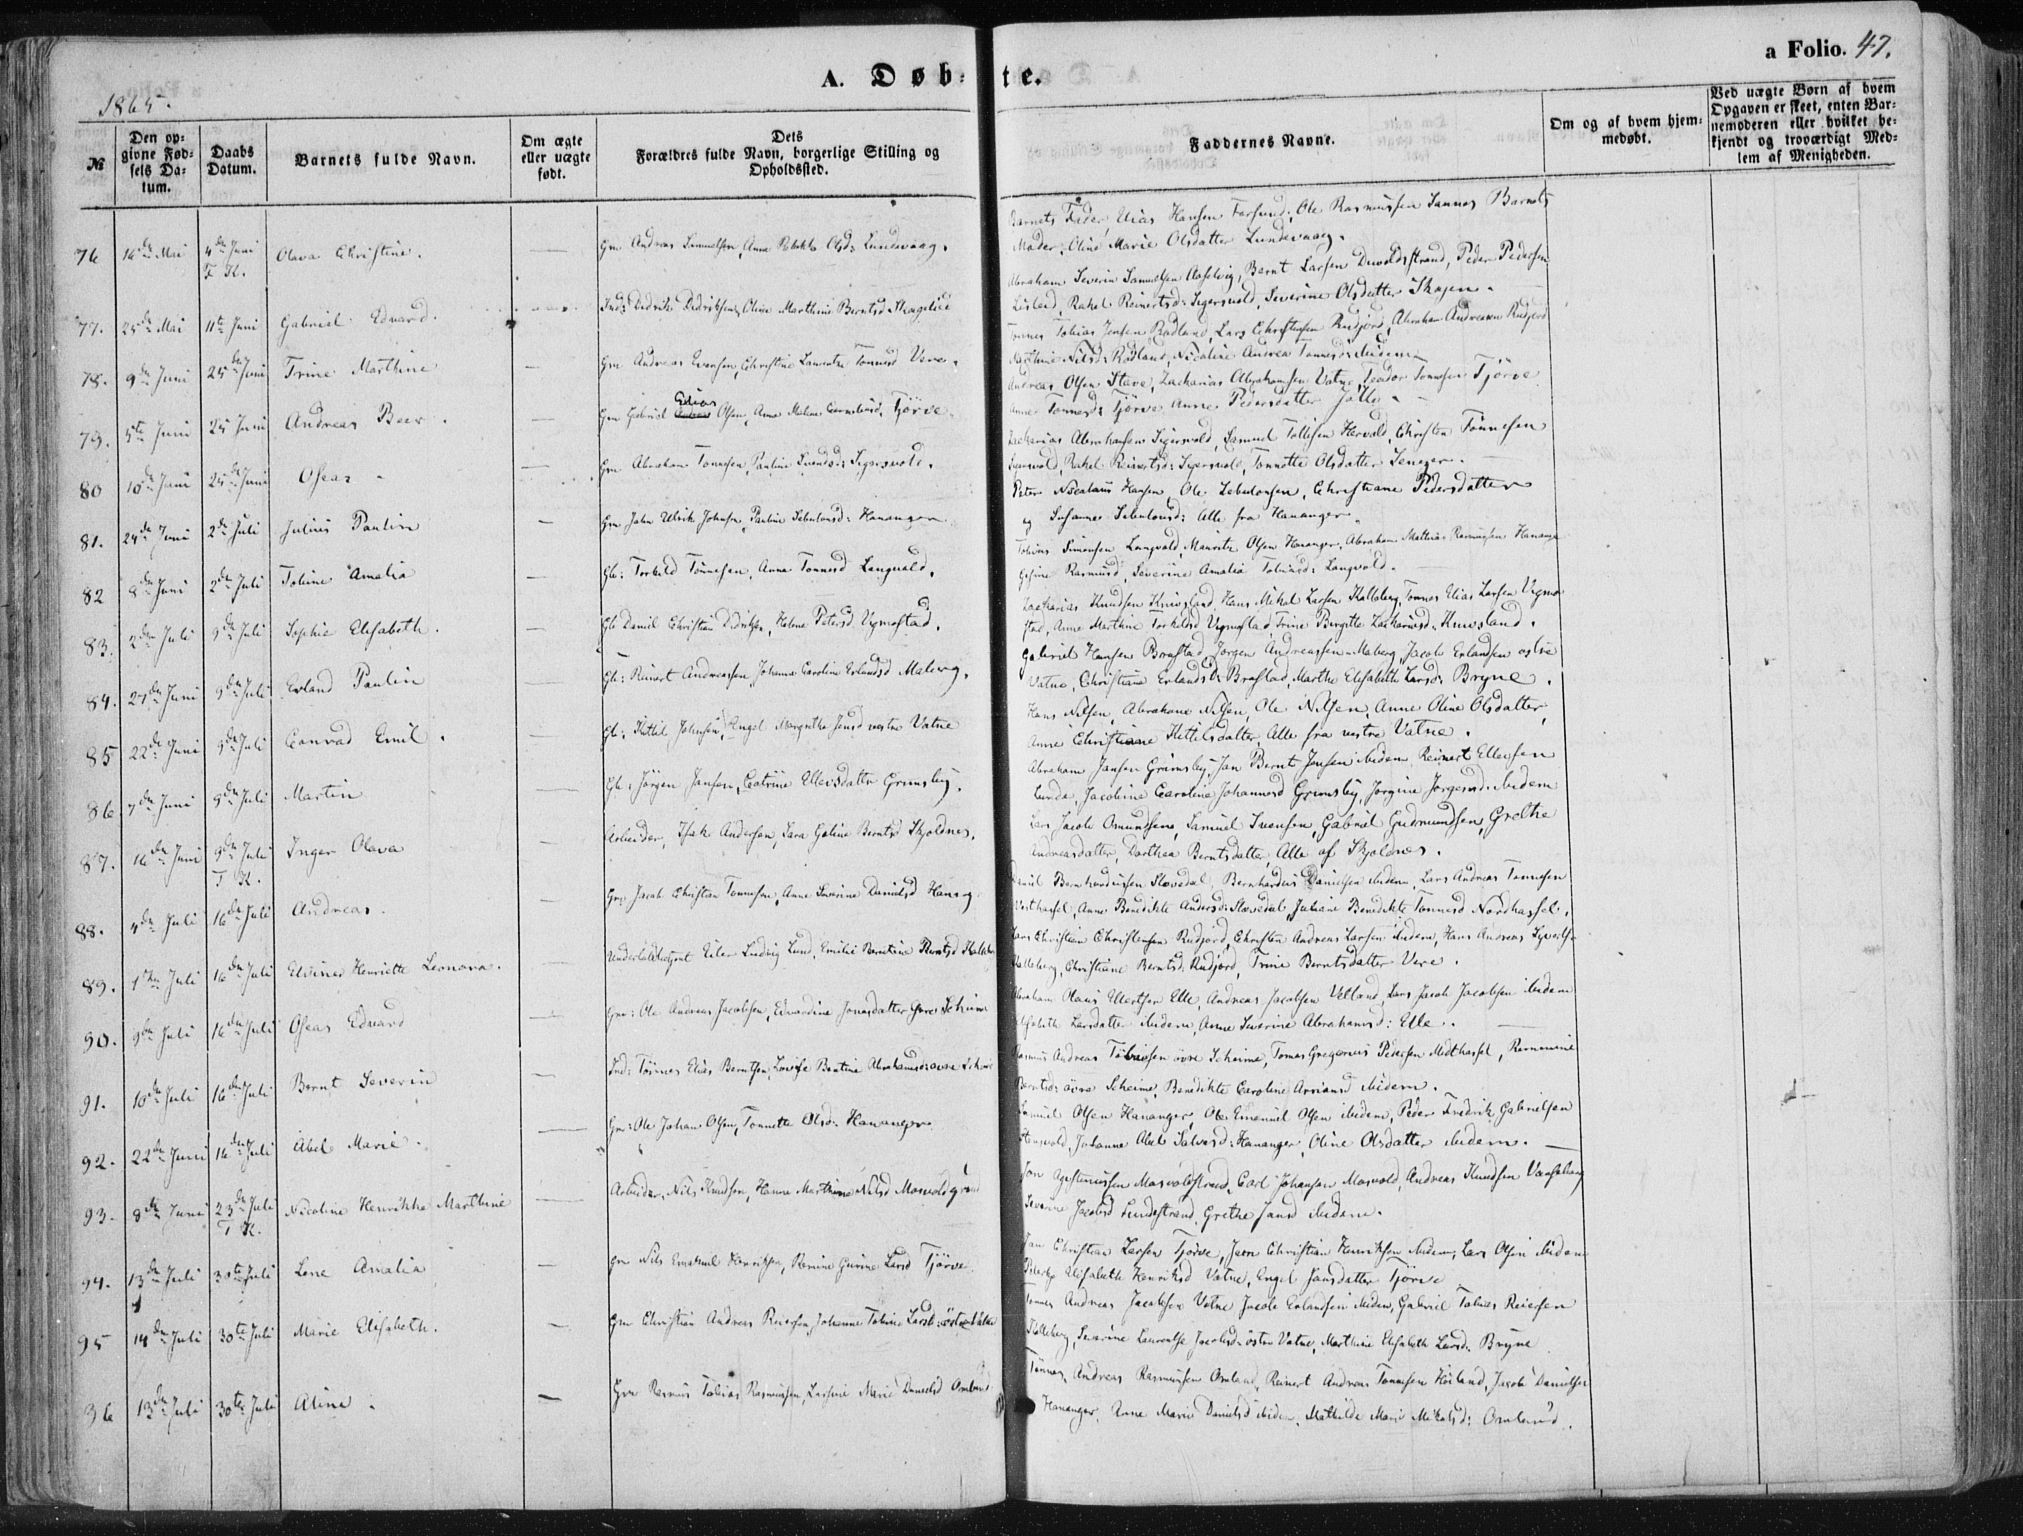 a Folio. 47.
A. Døbte.
1865.
№
Den opgivne Fødsels Datum.
Daabs Datum.
Barnets fulde Navn.
Om ægte eller uægte født.
Dets Forældres fulde Navn, borgerlige Stilling og Opholdssted.
Faddernes Navne.
Om og af hvem hjemmedøbt.
Ved uægte Børn af hvem Opgaven er skeet, enten Barnemoderen eller hvilket bekjendt og troværdigt Medlem af Menigheden.
76 16de Mai 4de Juni F. K. Olava Christine. Gm Andreas Samuelsen, Anne Olsd: Lundevaag.
Barnets Fader Elias Hansen Farsund, Ole Rasmussen Sannes Barnets
Moder, Oline Marie Olsdatter Lundevaag.
77. 25de Mai 11te Juni Gabriel Edvard. Inds: Didrik Didriksen, Oline Marthine Berntsd
Abraham Severin Samuelsen, Bernt Larsen, Peder Pedersen
Rakel Reinertsd: Sigersvold, Severine Olsdatter Skajen.
78. 9de Juni 25de Juni Trine Marthine Gm Andreas Evensen, Christine Laurentze Tonnesd Vere.
Tonnes Tobias Jensen Rødland, Lars Christensen Rudjord, Abraham Andreasen Rudjord
Marthine Nilsd: Rødland, Nicoline Andrea Tonnesd: ibidem
79. 5te Juni 25 Juni Andreas Beer. Gm Gabriel Edias Olsen, Anne Malene Tjørve.
Andreas Olsen Stave, Zacharias Abrahamsen Vatne, Teodor Tonnesen Tjørve
Anne Tonnesd: Tjørve Anne Pedersdatter
80 10de Juni 25de Juni Oseas Gm Abraham Tonnesen, Pauline Svendsd: Sigersvold.
Zacharias Abrahamsen Sigersvold, Samuel Tollefsen Hervold, Christen Tønnesen
Rakel Reinertsd: Sigersvold, Tonnette Olsdatter
81. 24de Juni 2de Juli Julius Paulin Gm John Ulrik Johnsen, Pauline Sebulonsd: Hananger
Peter Nicolaus Hansen, Ole Sebulonsen, Christiane Pedersdatter
og Susanne Sebulonsd: Alle fra Hananger.
82 8de Juni 2de Juli Tobine Amalia Gb: Torkild Tønnesen, Anne Tonnesd Langvald.
Tobias Simonsen Langvald, Mauritz Olsen Hananger, Abraham Mathias Rasmussen Hananger
Gesine Rasmusd, Severine Amalia Tobiasd: Langvold.
83. 2den Juli 9de Juli Sophie Elisabeth. Gb Daniel Christian Didriksen, Helene Petersd Vigmostad.
Zacharias Knudsen Knivsland, Hans Mikal Larsen Kalleberg, Tonnes Elias Larsen Vigmo
stad, Anne Marthine Torkildsd Vigmostad, Trine Birgitte Zachariasd: Knivsland.
84. 27de Juni 9de Juli Erland Paulin Gb: Reinert Andreassen, Johanne Caroline Erlandsd Maberg.
Gabriel Hansen Brastad, Jorgen Andreassen Maberg, Jacob Erlandsen østre
Vatne, Christiane Erlandsd: Brastad, Marthe Elisabeth Larsd: Bryne.
85 22de Juni 9de Juli Conrad Emil. Gb: Kittil Johnsen, Engel Margrethe Jensd vestre Vatne
Hans Nilsen, Abraham Nilsen, Ole Nilsen, Anne Oline Olsdatter,
Anne Christiane Kittilsdatter, Alle fra vestre Vatne.
86 7de Juni 9de Juli Martin Gb: Jørgen Jansen, Catrine Ellevsdatter Grimsby.
Abraham Jansen Grimsby, Jan Bernt Jensen ibidem, Reinert Ellevsen
Lunde, Jacobine Caroline Johannesd Grimsby, Jorgine Jorgensd: ibidem
87. 16de Juni 9de Juli F. K. Inger Olava Arbeider, Isak Andersen, Sara Galine Berntsd Skjoldnes.
Lars Jacob Omundsen, Samuel Svensen, Gabriel Gudmundsen, Grethe
Andreasdatter, Dorthea Berntsdatter, Alle af Skjoldnes.
88. 4de Juli 16de Juli Andreas. Gm Jacob Christian Tonnesen, Anne Severine Danielsd
Daniel Bernhardussen Slevedal, Bernhardus Danielsen ibidem, Lars Andreas Tonnesen
Vesthassel, Anne Benedikte Andersd: Slevedal, Juliane Benedikte Tonnesd Nordhassel.
89. 1ste Juli 16de Juli Elvine Henriette Leonora. Eiler Ludvig Lund, Emilie Berntsd
Lars Christian Christensen Rudjord, Christen Andreas Larsen ibidem, Hans Andreas
Kalleberg, Christiane Berntsd: Rudjord, Trine Berntsdatter Vere.
90. 9de Juli 16de Juli Oseas Edvard Gm: Ole Andreas Jacobsen, Edvardine Jonasdatter
Abraham Olaus Elle, Andreas Jacobsen Velland, Lars Jacob Jacobsen ibidem
Elisabeth Larsdatter ibidem, Anne Severine Abrahamsd: Elle.
91. 10de Juli 16de Juli Bernt Severin Inds: Tønnes Elias Berntsen, Lovise Bentine Abrahamsd: øvre
Rasmus Andreas Tobiassen øvre Scheime, Tomas Gregorius Pedersen Midthassel,
Berntsd: øvre Scheime, Benedikte Caroline ibidem.
92. 22de Juni 16de Juli Abel Marie. Gm: Ole Johan Olsen, Tonnette Olsd: Hananger
Samuel Olsen Hananger, Ole Emanuel Olsen ibidem, Peder Fredrik Gabrielsen
Johanne Abel Salvesd: Hananger, Oline Olsdatter ibidem.
93. 8de Juni 23de Juli F. K. Nicoline Henrikka Marthine Arbeider, Nils Knudsen, Hanne Marthine Nilsd
Carl Johansen Mosvold, Andreas Knudsen
Severine Jacobsd Lundestrand, Grethe Jansd ibidem.
94. 13de Juli 30te Juli Lene Amalia Gm Nils Emanuel Henriksen, Gurine Larsd Tjørve.
Jan Christian Larsen Tjørve, Jern Christian Henriksen ibidem, Lars Olsen ibidem
Elisabeth Henriksd Vatne, Engel Jansdatter Tjørve
95 14de Juli 30te Juli Marie Elisabeth. Gm Christian Andreas Reiersen, Johanne Tobine Larsd:
Tonnes Andreas Jacobsen Vatne, Jacob Erlandsen ibidem, Gabriel Tobias Reiersen
Kalleberg, Severine Laurentse Jacobsd: østre Vatne, Marthine Elisabeth Larsd: Bryne
96 13de Juli 30te Juli Aline. Gm Rasmus Tobias Rasmussen, Marie Danielsd Omland
Tønnes Andreas Rasmussen Omland, Reinert Andreas Tonnesen Høiland, Jacob Danielsen
Hananger, Anne Marie Danielsd ibidem, Mathilde Marie Mikalsd: Omland.